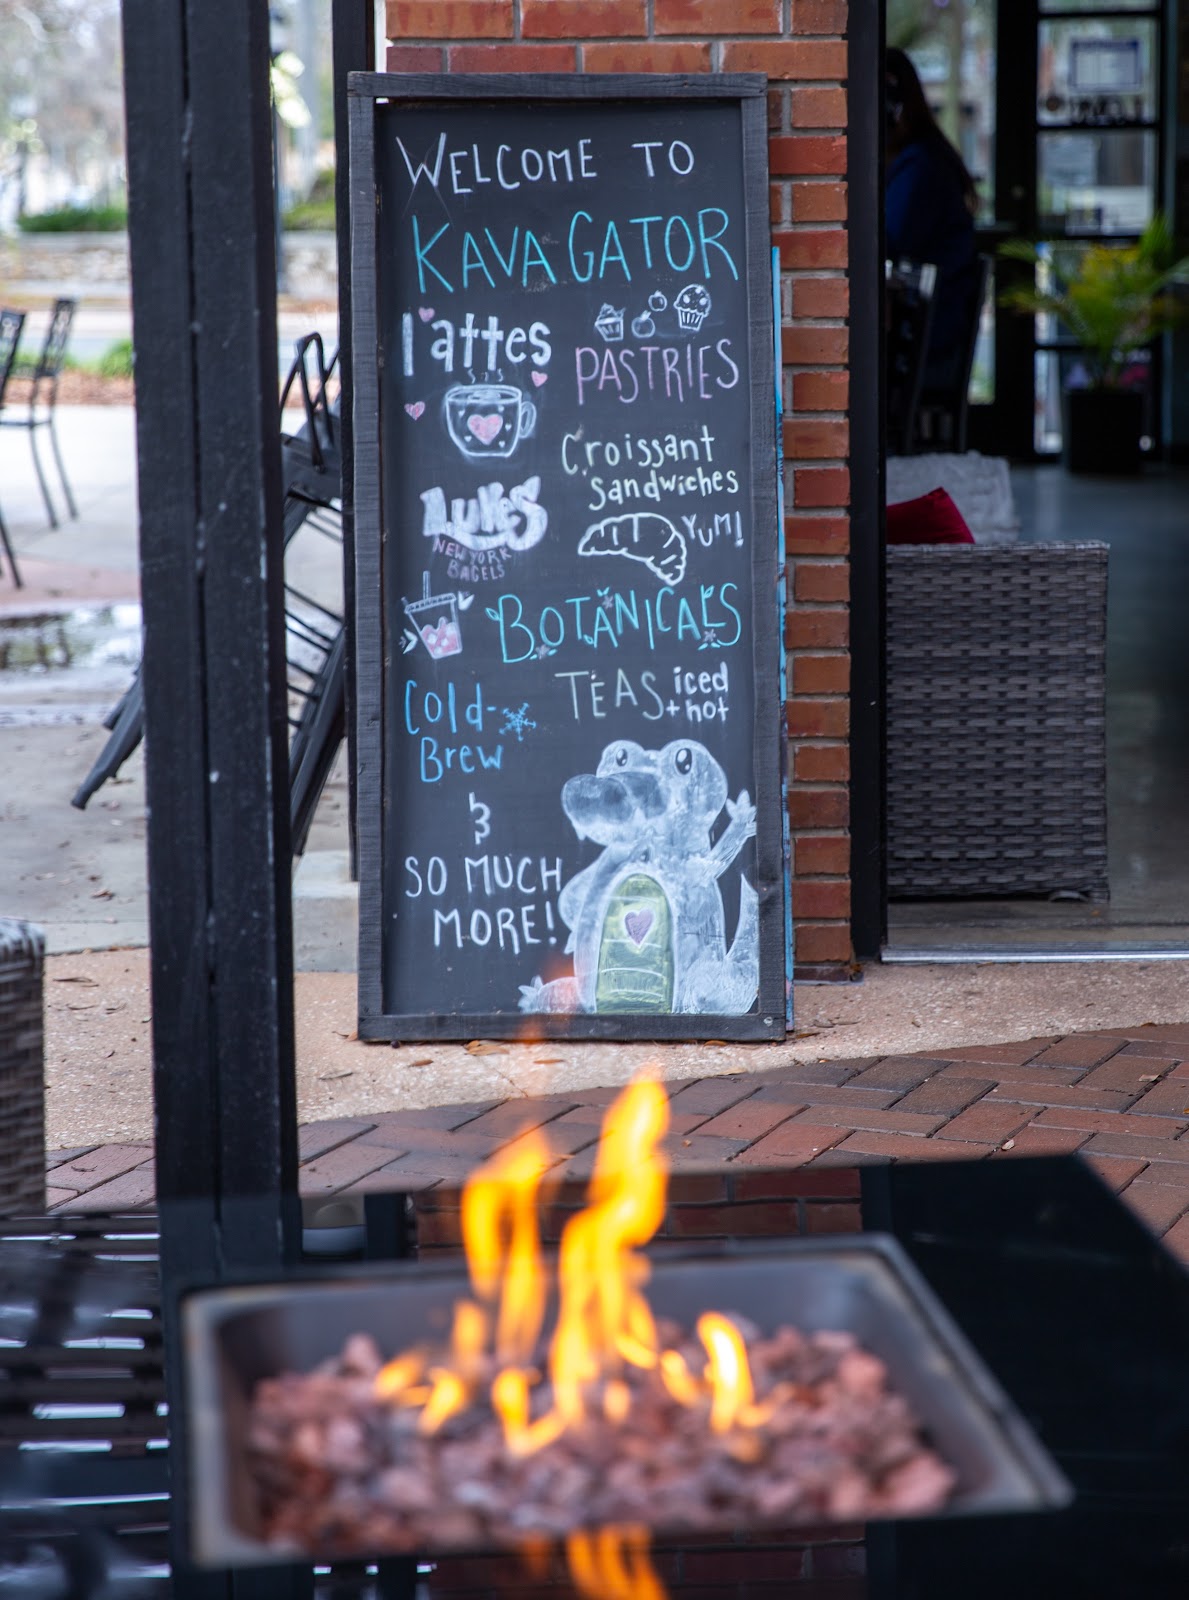 WELCOME TO
KAVA GATOR
lattes
PASTRIES
Croissant
Sandwiches
YUM!
LUKES
NEW YORK
BAGELS
BOTANICALS
TEAS iced
+ hot
Cold-
Brew
&
SO MUCH
MORE!